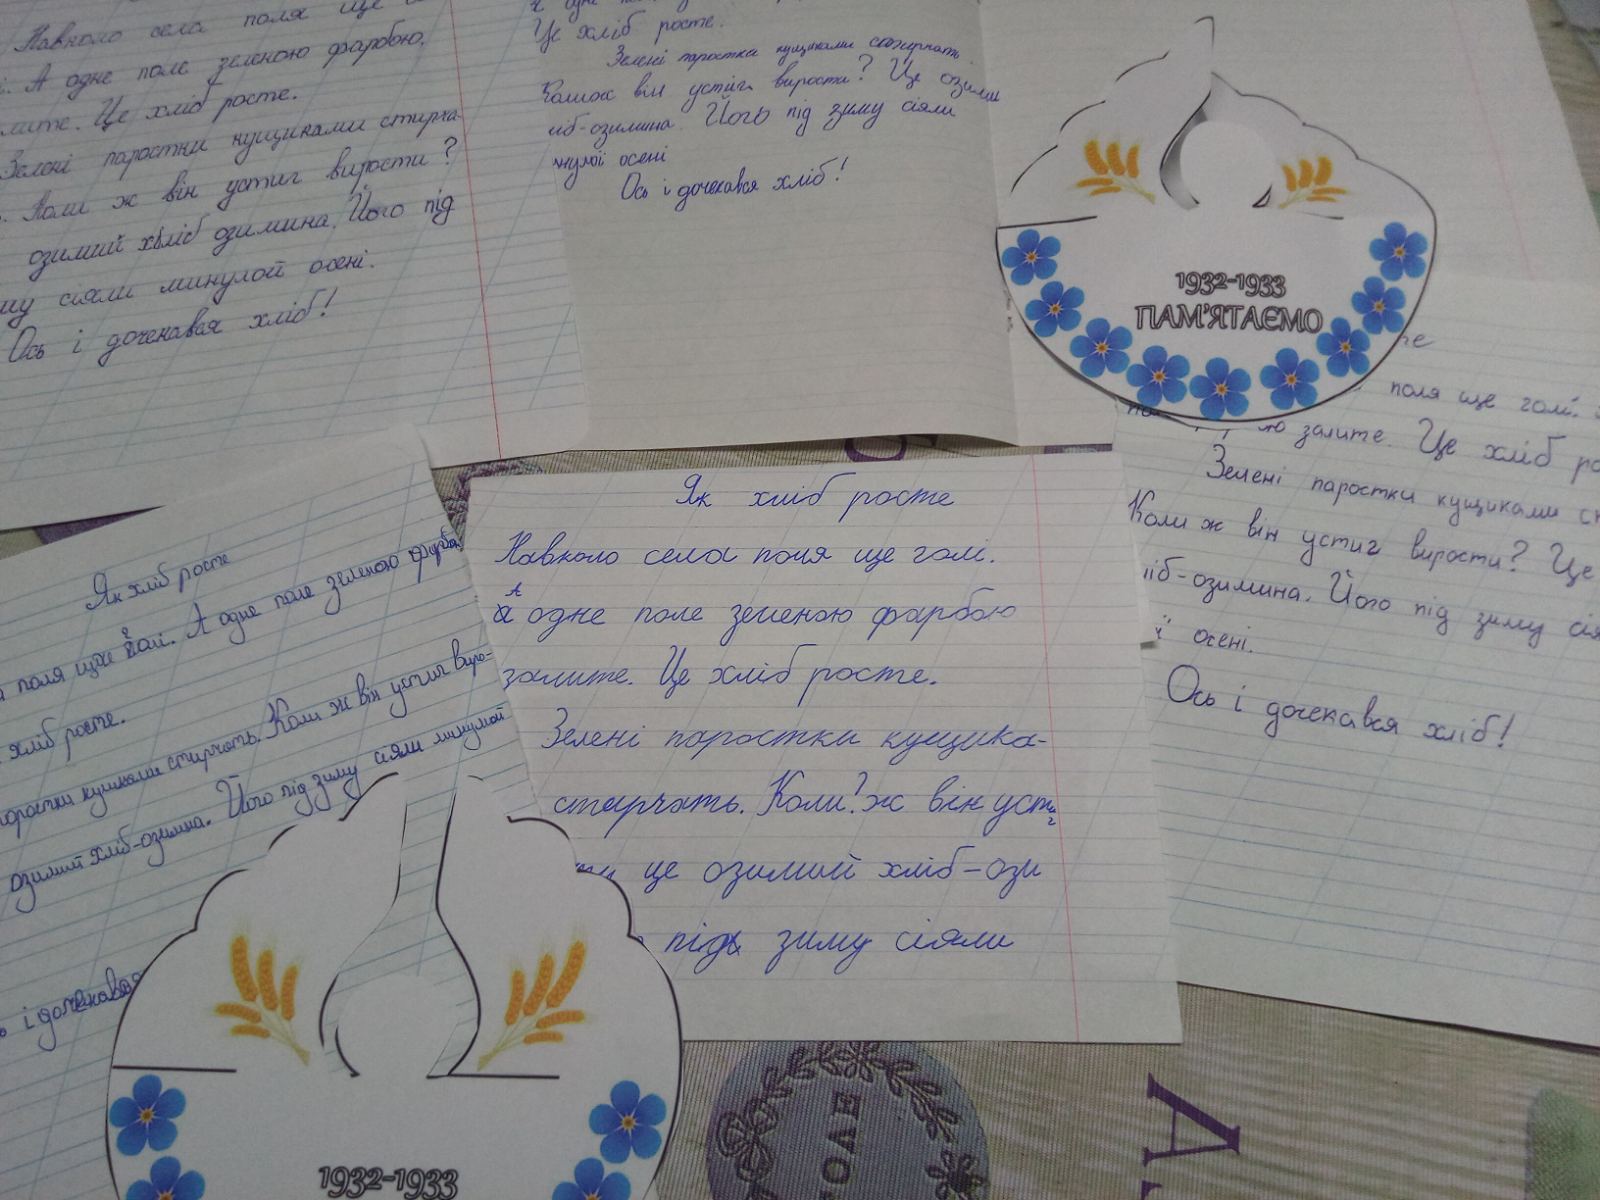 Навколо села поля ще
А одне поле зеленою фарбою,
Це хліб росте.
Зелені паростки кущиками стирча-
Коли ж він устиг вирости?
озимий хліб озимина. Його під
сіяли минулой осені.
Ось і дочекався хліб!
Це хліб росте.
Зелені паростки кущиками стирчать
Колиж він устиг вирости? Це озими
іб-озимина. Його під зиму сіяли
нулої осені
Ось і дочекався хліб!
1932-1933
ПАМ'ЯТАЄМО
поля ще голі.
залите. Це хліб ро
Зелені паростки кущиками
Коли ж він устиг вирости? Це
ліб-озимина. Його під зиму сія
ї осені.
Ось і дочекався хліб!
Як хліб росте
поля ще голі. А одне поле зеленою
хліб росте.
стирчать. Коли ж він устиг виро-
озимий хліб-озимина. Його під зиму сіяли минулой
і дочекався
Як хліб росте
Навколо села поля ще голі.
А одне поле зеленою фарбою
залите. Це хліб росте.
Зелені паростки кущика-
стирчать. Коли? ж він устиг
це озимий хліб-ози
під зиму сіяли
1932-1933
ОДЕ
А